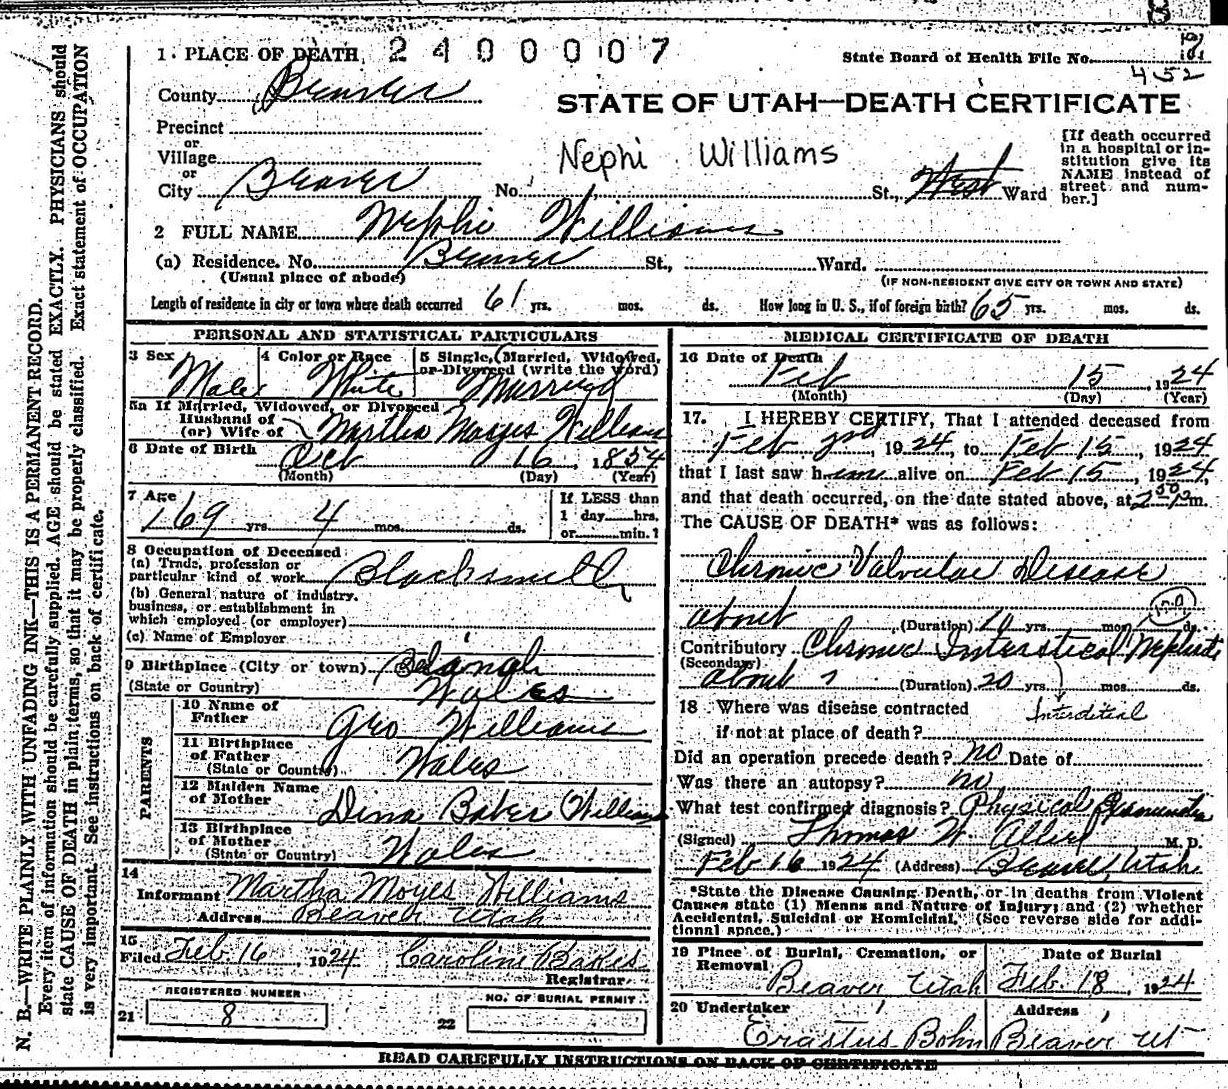 1. PLACE OF DEATH 2400007
State Board of Health File No. 8
452
County Beaver
STATE OF UTAH—DEATH CERTIFICATE
Precinct
or
Village
or
City Beaver No. St., West Ward
Nephi Williams
[If death occurred
in a hospital or in-
stitution give its
NAME instead of
street and num-
ber.]
2 FULL NAME Nephi Williams
(a) Residence. No. Beaver St., Ward.
(Usual place of abode) (IF NON-RESIDENT GIVE CITY OR TOWN AND STATE)
Length of residence in city or town where death occurred 61 yrs. mos. ds. How long in U. S., if of foreign birth? 65 yrs. mos. ds.
PERSONAL AND STATISTICAL PARTICULARS
3 Sex Male
4 Color or Race White
5 Single, Married, Widowed,
or Divorced (write the word)
Married
5a If Married, Widowed, or Divorced
Husband of
(or) Wife of Martha Moyes Williams
6 Date of Birth Oct 16, 1854
(Month) (Day) (Year)
7 Age 69 yrs. 4 mos. ds.
If LESS than
1 day hrs.
or min.?
8 Occupation of Deceased
(a) Trade, profession or
particular kind of work Blacksmith
(b) General nature of industry,
business, or establishment in
which employed (or employer)
(c) Name of Employer
9 Birthplace (City or town)
(State or Country) Wales
PARENTS
10 Name of
Father Geo Williams
11 Birthplace
of Father
(State or Country) Wales
12 Maiden Name
of Mother Dina Baker Williams
13 Birthplace
of Mother
(State or Country) Wales
14
Informant Martha Moyes Williams
Address Beaver Utah
15
Filed Feb. 16, 1924 Caroline Bakes
Registrar
REGISTERED NUMBER
21 8
NO. OF BURIAL PERMIT
22
MEDICAL CERTIFICATE OF DEATH
16 Date of Death
Feb 15, 1924
(Month) (Day) (Year)
17. I HEREBY CERTIFY, That I attended deceased from
Feb 3rd, 1924, to Feb 15, 1924
that I last saw him alive on Feb 15, 1924,
and that death occurred, on the date stated above, at 2 50 P m.
The CAUSE OF DEATH* was as follows:
Chronic Valvular Disease
about (Duration) 10 yrs. mos. ds.
Contributory Chronic Interstical Nephritis
(Secondary)
about ? (Duration) 20 yrs. mos. ds.
18 Where was disease contracted
if not at place of death?
Interstitial
Did an operation precede death? no Date of
Was there an autopsy? no
What test confirmed diagnosis? Physical Examination
(Signed) Thomas W. Allred M. D.
Feb 16 1924 (Address) Beaver, Utah
*State the Disease Causing Death, or in deaths from Violent
Causes state (1) Means and Nature of Injury; and (2) whether
Accidental, Suicidal or Homicidal. (See reverse side for addi-
tional space.)
19 Place of Burial, Cremation, or
Removal Beaver Utah
Date of Burial
Feb. 18, 1924
20 Undertaker
Erastus Bohn
Address
Beaver Ut
READ CAREFULLY INSTRUCTIONS ON BACK OF CERTIFICATE
N. B.—WRITE PLAINLY WITH UNFADING INK—THIS IS A PERMANENT RECORD.
Every item of information should be carefully supplied. AGE should be stated EXACTLY. PHYSICIANS should
state CAUSE OF DEATH in plain terms, so that it may be properly classified. Exact statement of OCCUPATION
is very important. See instructions on back of certificate.